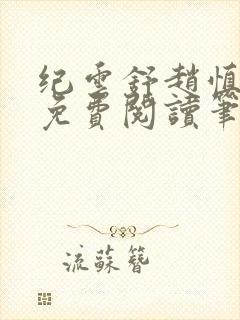 纪云舒趙慎
免費閱讀筆
流蘇簪